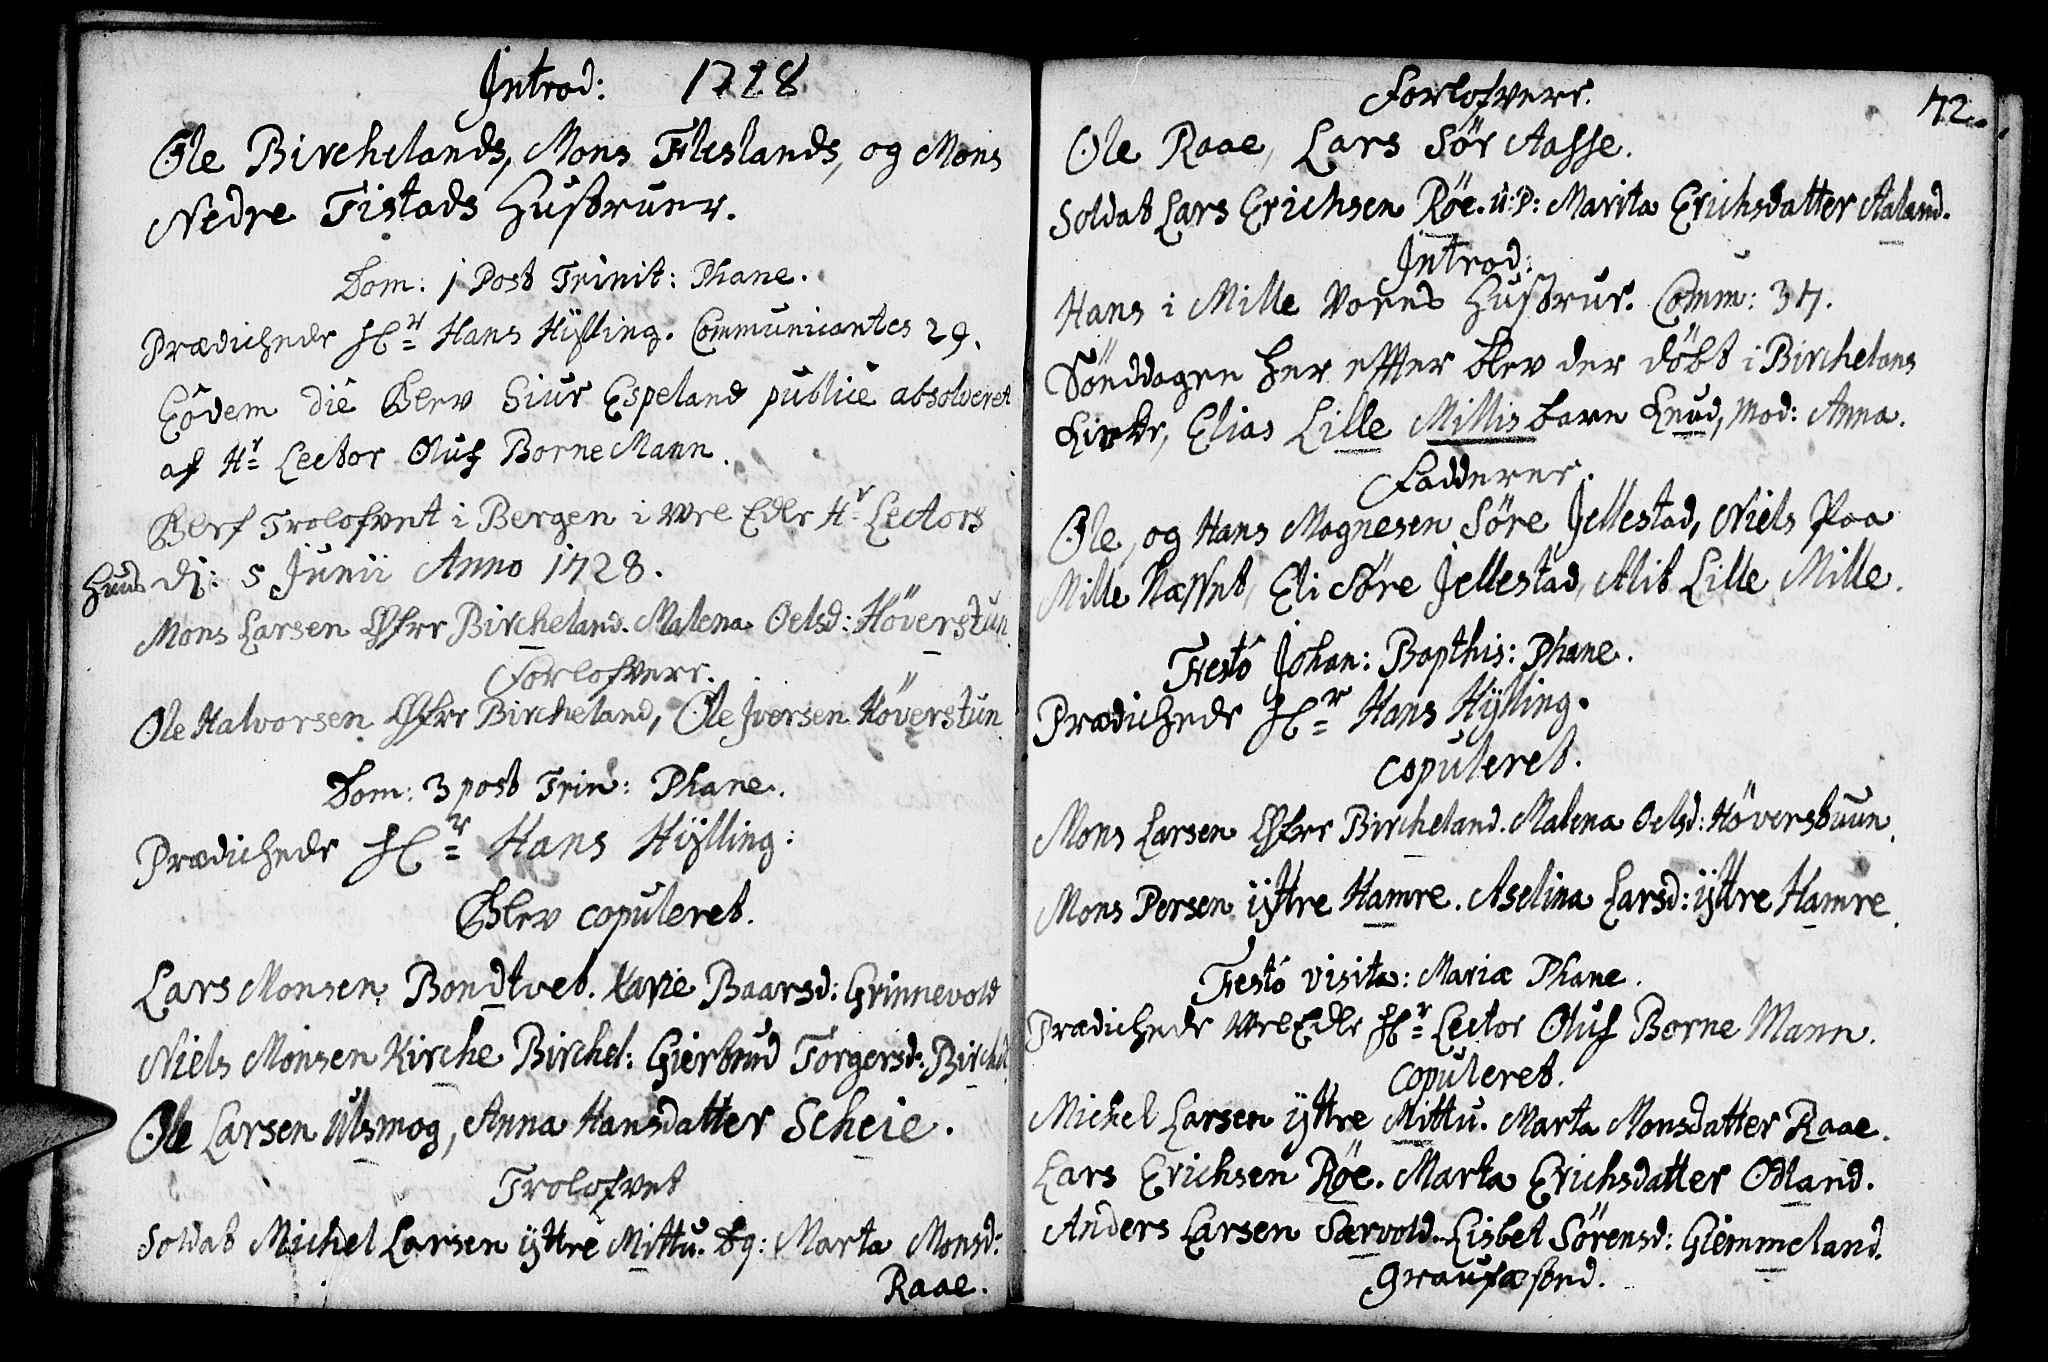 Introd: 1728
Ole Birchelands, Mons Fleslands, og Mons
Nedre Tistads Hustruer.
Dom: 1 Post Trinit: Phane.
Prædichede Hr Hans Hÿlling. Communicantes 29.
Eodem die blev Siur Espeland publice absolveret
af Hr Lector Oluf Borne Mann.
Blef Trolofvet i Bergen i Vel Edle Hr Lectors
Huus dj: 5 Junii Anno 1728.
Mons Larsen Øfre Bircheland. Malena Oelsd: Höverstun
Forlofvere.
Ole Halvorsen Øfre Bircheland, Ole Iversen Höverstun
Dom: 3 post Trin: Phane.
Prædichede Hr Hans Hÿlling:
Blev copuleret.
Lars Monsen Bondtvet. Karie Baarsd: Grinnevold
Niels Monsen Kirche Birchel: Giertrud Torgersd: Birchel
Ole Larsen Ulsmog, Anna Hansdatter Scheie.
Trolofvet
Soldat Michel Larsen ÿttre Mittu. og: Marta Monsd:
Raae.
72.
Forlofvere.
Ole Raae, Lars Sör Aasse.
Soldat Lars Erichsen Röe. u:P: Marita Erichsdatter Aaland.
Introd:
Hans i Mille Vores Hustrue. Comm: 37.
Sönddagen her effter blev der döbt i Birchelans
Kirke, Elias Lille Millis barn Knud, Mod: Anna.
Fadderer.
Ole, og Hans Magnesen Søre Jellestad, Niels Paa
Mille Næsset, Eli Søre Jellestad, Alit Lille Mille.
Festo Johan: Bapthis: Phane.
Prædichede Hr Hans Hÿlling.
Copuleret.
Mons Larsen Øfre Bircheland. Malena Oelsd: Höverstuun.
Mons Persen ÿttre Hamre. Aselina Larsd: ÿttre Hamre.
Festo visita: Mariæ Phane.
Prædichede VelEdle Hr Lector Oluf Borne Mann.
Copuleret.
Michel Larsen ÿttre Mittu. Marta Monsdatter Raae.
Lars Erichsen Röe. Marta Erichsdatter Odland.
Anders Larsen Særvold. Lisbet Sörensd: Giemmeland.
Graufæstnd.